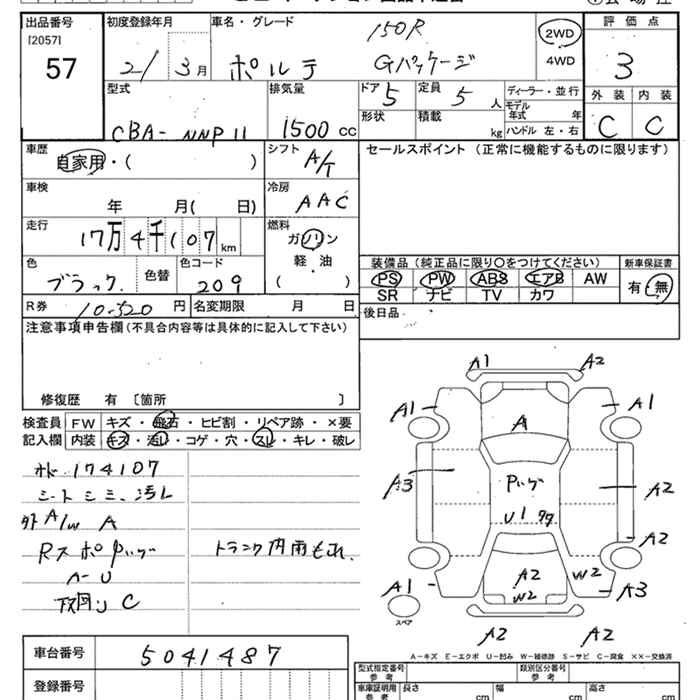 出品番号
[2057]
57
初度登録年月
2/3月
車名・グレード
150R
ポルテ Gパッケージ
2WD
4WD
評価点
3
外装 内装
C C
型式
CBA-NNP11
排気量
1500cc
ドア 5
定員 5人
形状
積載 kg
ディーラー・並行
モデル年式 年
ハンドル 左・右
車歴
自家用・( )
シフト
A/T
セールスポイント (正常に機能するものに限ります)
車検
年 月( 日)
冷房
AAC
走行
17万4千107km
燃料
ガソリン
軽・油
( )
色
ブラック
色替
色コード
209
装備品 (純正品に限り○をつけてください)
PS PW ABS エアB AW
SR ナビ TV カワ
新車保証書
有・無
R券 10,520円
名変期限 月 日
後日品
注意事項申告欄(不具合内容等は具体的に記入して下さい)
修復歴 有〔箇所 〕
検査員記入欄
FW キズ・飛石・ヒビ割・リペア跡・×要
内装 キズ・汚れ・コゲ・穴・スレ・キレ・破レ
174107
シートシミ、汚レ
外A/W A
A-U
下廻りC
トランク内雨もれ
A1 A2
A1 A1
A
A3 A2
U1
A2
A2 W2
W2
A1 A3
スペア
A2 A2
A－キズ E－エクボ U－凹み W－補修跡 S－サビ C－腐食 ××－交換済
車台番号
5041487
登録番号
型式指定番号 参考
類別区分番号 参考
車庫証明用 参考
長さ cm
幅 cm
高さ cm